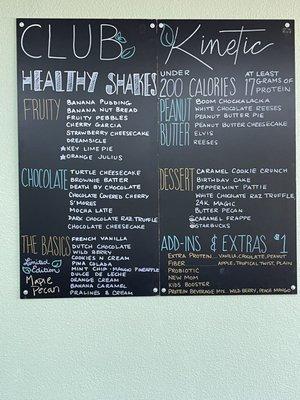 CLUB Kinetic
HEALTHY SHAKES
UNDER 200 CALORIES
AT LEAST 17 GRAMS OF PROTEIN
FRUITY
BANANA PUDDING
BANANA NUT BREAD
FRUITY PEBBLES
CHERRY GARCIA
STRAWBERRY CHEESECAKE
DREAMSICLE
KEY LIME PIE
ORANGE JULIUS
CHOCOLATE
TURTLE CHEESECAKE
BROWNIE BATTER
DEATH BY CHOCOLATE
CHOCOLATE COVERED CHERRY
S'MORES
MOCHA LATTE
DARK CHOCOLATE RAZ TRUFFLE
CHOCOLATE CHEESECAKE
THE BASICS
FRENCH VANILLA
DUTCH CHOCOLATE
WILD BERRY
COOKIES N CREAM
PINA COLADA
MINT CHIP · MAGIC PINEAPPLE
DULCE DE LECHE
ORANGE CREAM
BANANA CARAMEL
PRALINES & CREAM
Limited Edition
Maple Pecan
PEANUT BUTTER
BOOM CHOCKALACKA
WHITE CHOCOLATE REESES
PEANUT BUTTER PIE
PEANUT BUTTER CHEESECAKE
ELVIS
REESES
DESSERT
CARAMEL COOKIE CRUNCH
BIRTHDAY CAKE
PEPPERMINT PATTIE
WHITE CHOCOLATE RAZ TRUFFLE
24K MAGIC
BUTTER PECAN
CARAMEL FRAPPE
STARBUCKS
ADD-INS & EXTRAS $1
EXTRA PROTEIN... VANILLA, CHOCOLATE, PEANUT
FIBER APPLE, TROPICAL TWIST, PLAIN
PROBIOTIC
NEW MOM
KIDS BOOSTER
PROTEIN BEVERAGE MIX... WILD BERRY, PEACH MANGO